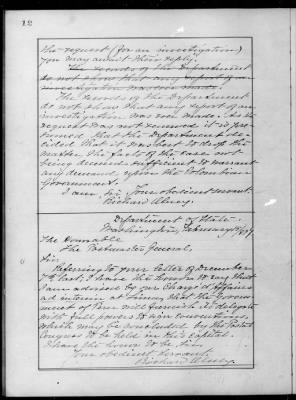 12
the request (for an investigation)
you may await their reply.
The records of the Department
do not show that any report of an
investigation was ever made.
The records of the Department
do not show that any report of an
investigation was ever made. As the
request was not renewed it is pre-
sumed that the Department de-
cided that it was best to drop the
matter, the facts of the case not
being deemed sufficient to warrant
any demand upon the Colombian
Government.
I am, Sir, Your obedient servant.
Richard Olney.
Department of State.
Washington, February
The Honorable
The Postmaster General.
Sir,
Referring to your letter of December
last, I have the honor to say that
I am advised by our Chargé d'Affaires
ad interim at Lima that the Govern-
ment of Peru will furnish its delegate
with full powers to sign conventions,
which may be concluded by the Postal
Congress to be held in this Capital.
I have the honor to be, Sir,
Your obedient servant,
Richard Olney.